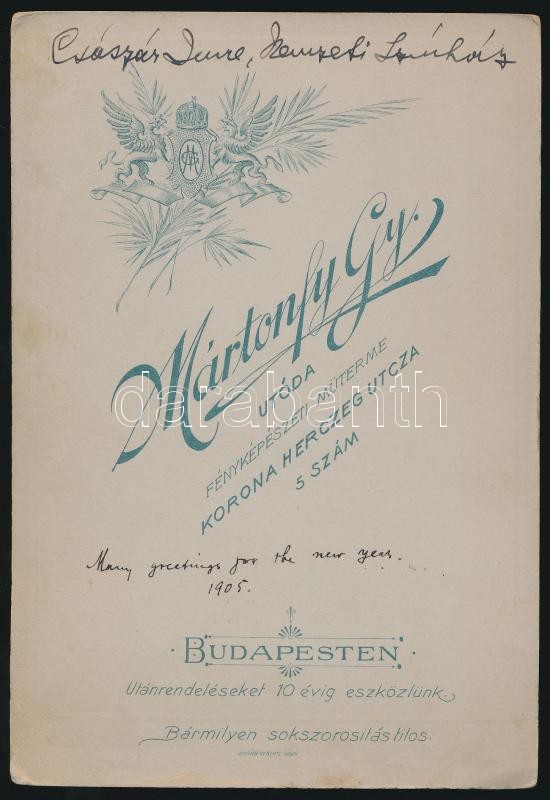 Császár Imre, Nemzeti Színház
Mártonfy Gy.
UTÓDA
FÉNYKÉPÉSZETI MŰTERME
KORONA HERCZEG UTCZA
5 SZÁM
darabanth
Many greetings for the new year.
1905.
BUDAPESTEN
Utánrendeléseket 10 évig eszközlünk
Bármilyen sokszorositás tilos.